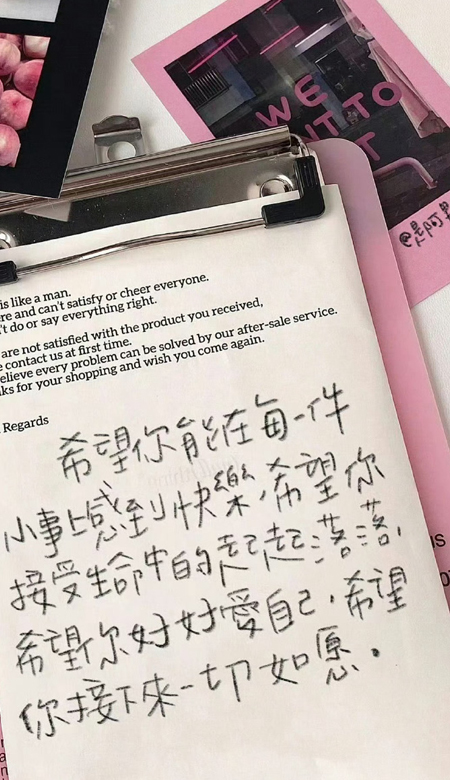 WE
TO
T
is like a man.
ere and can't satisfy or cheer everyone.
't do or say everything right.
are not satisfied with the product you received,
e contact us at first time.
elieve every problem can be solved by our after-sale service.
ks for your shopping and wish you come again.
Regards
希望你能在每一件
小事上感到快樂,希望你
接受生命中的起起落落,
希望你好好愛自己,希望
你接下來一切如愿.